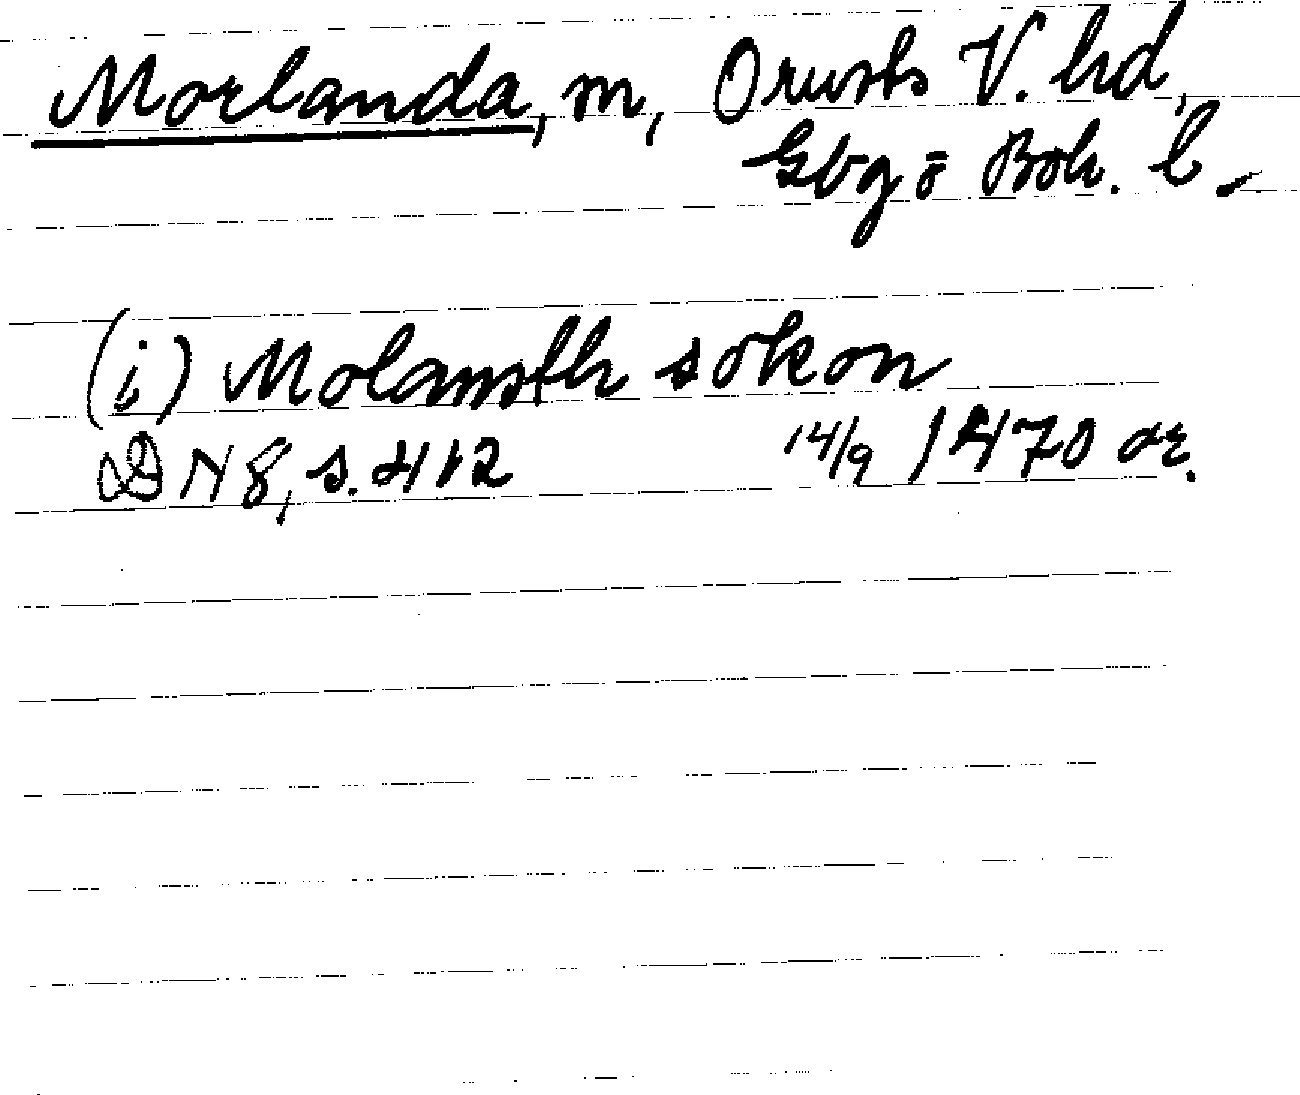 Morlanda, sn, Orusts V. hd,
Gbg o Boh. l.
(i) Molansth sokon
DN 8, s. 412 14/9 1470 or.